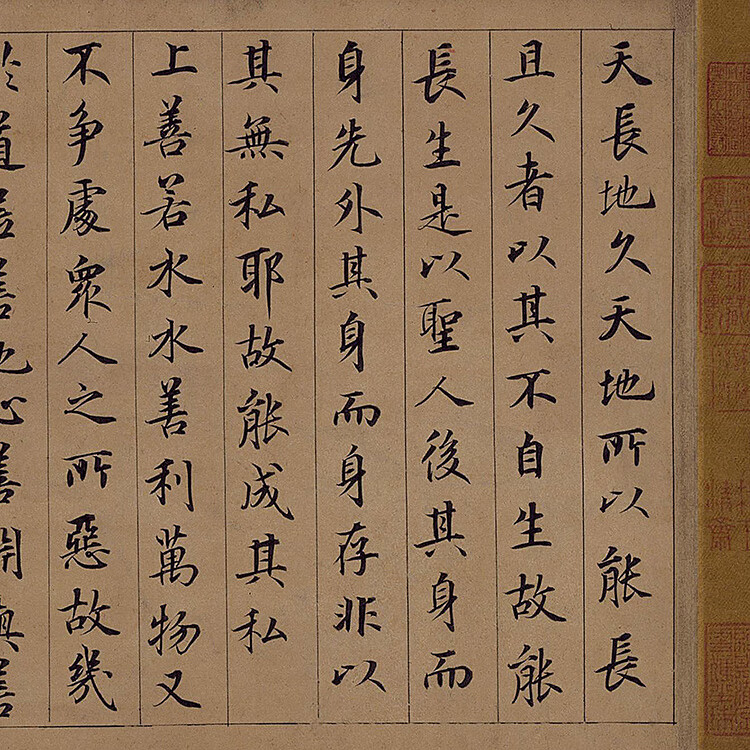 天長地久天地所以能長
且久者以其不自生故能
長生是以聖人後其身而
身先外其身而身存非以
其無私耶故能成其私
上善若水水善利萬物又
不争處衆人之所惡故幾
於道居善地心善淵與善